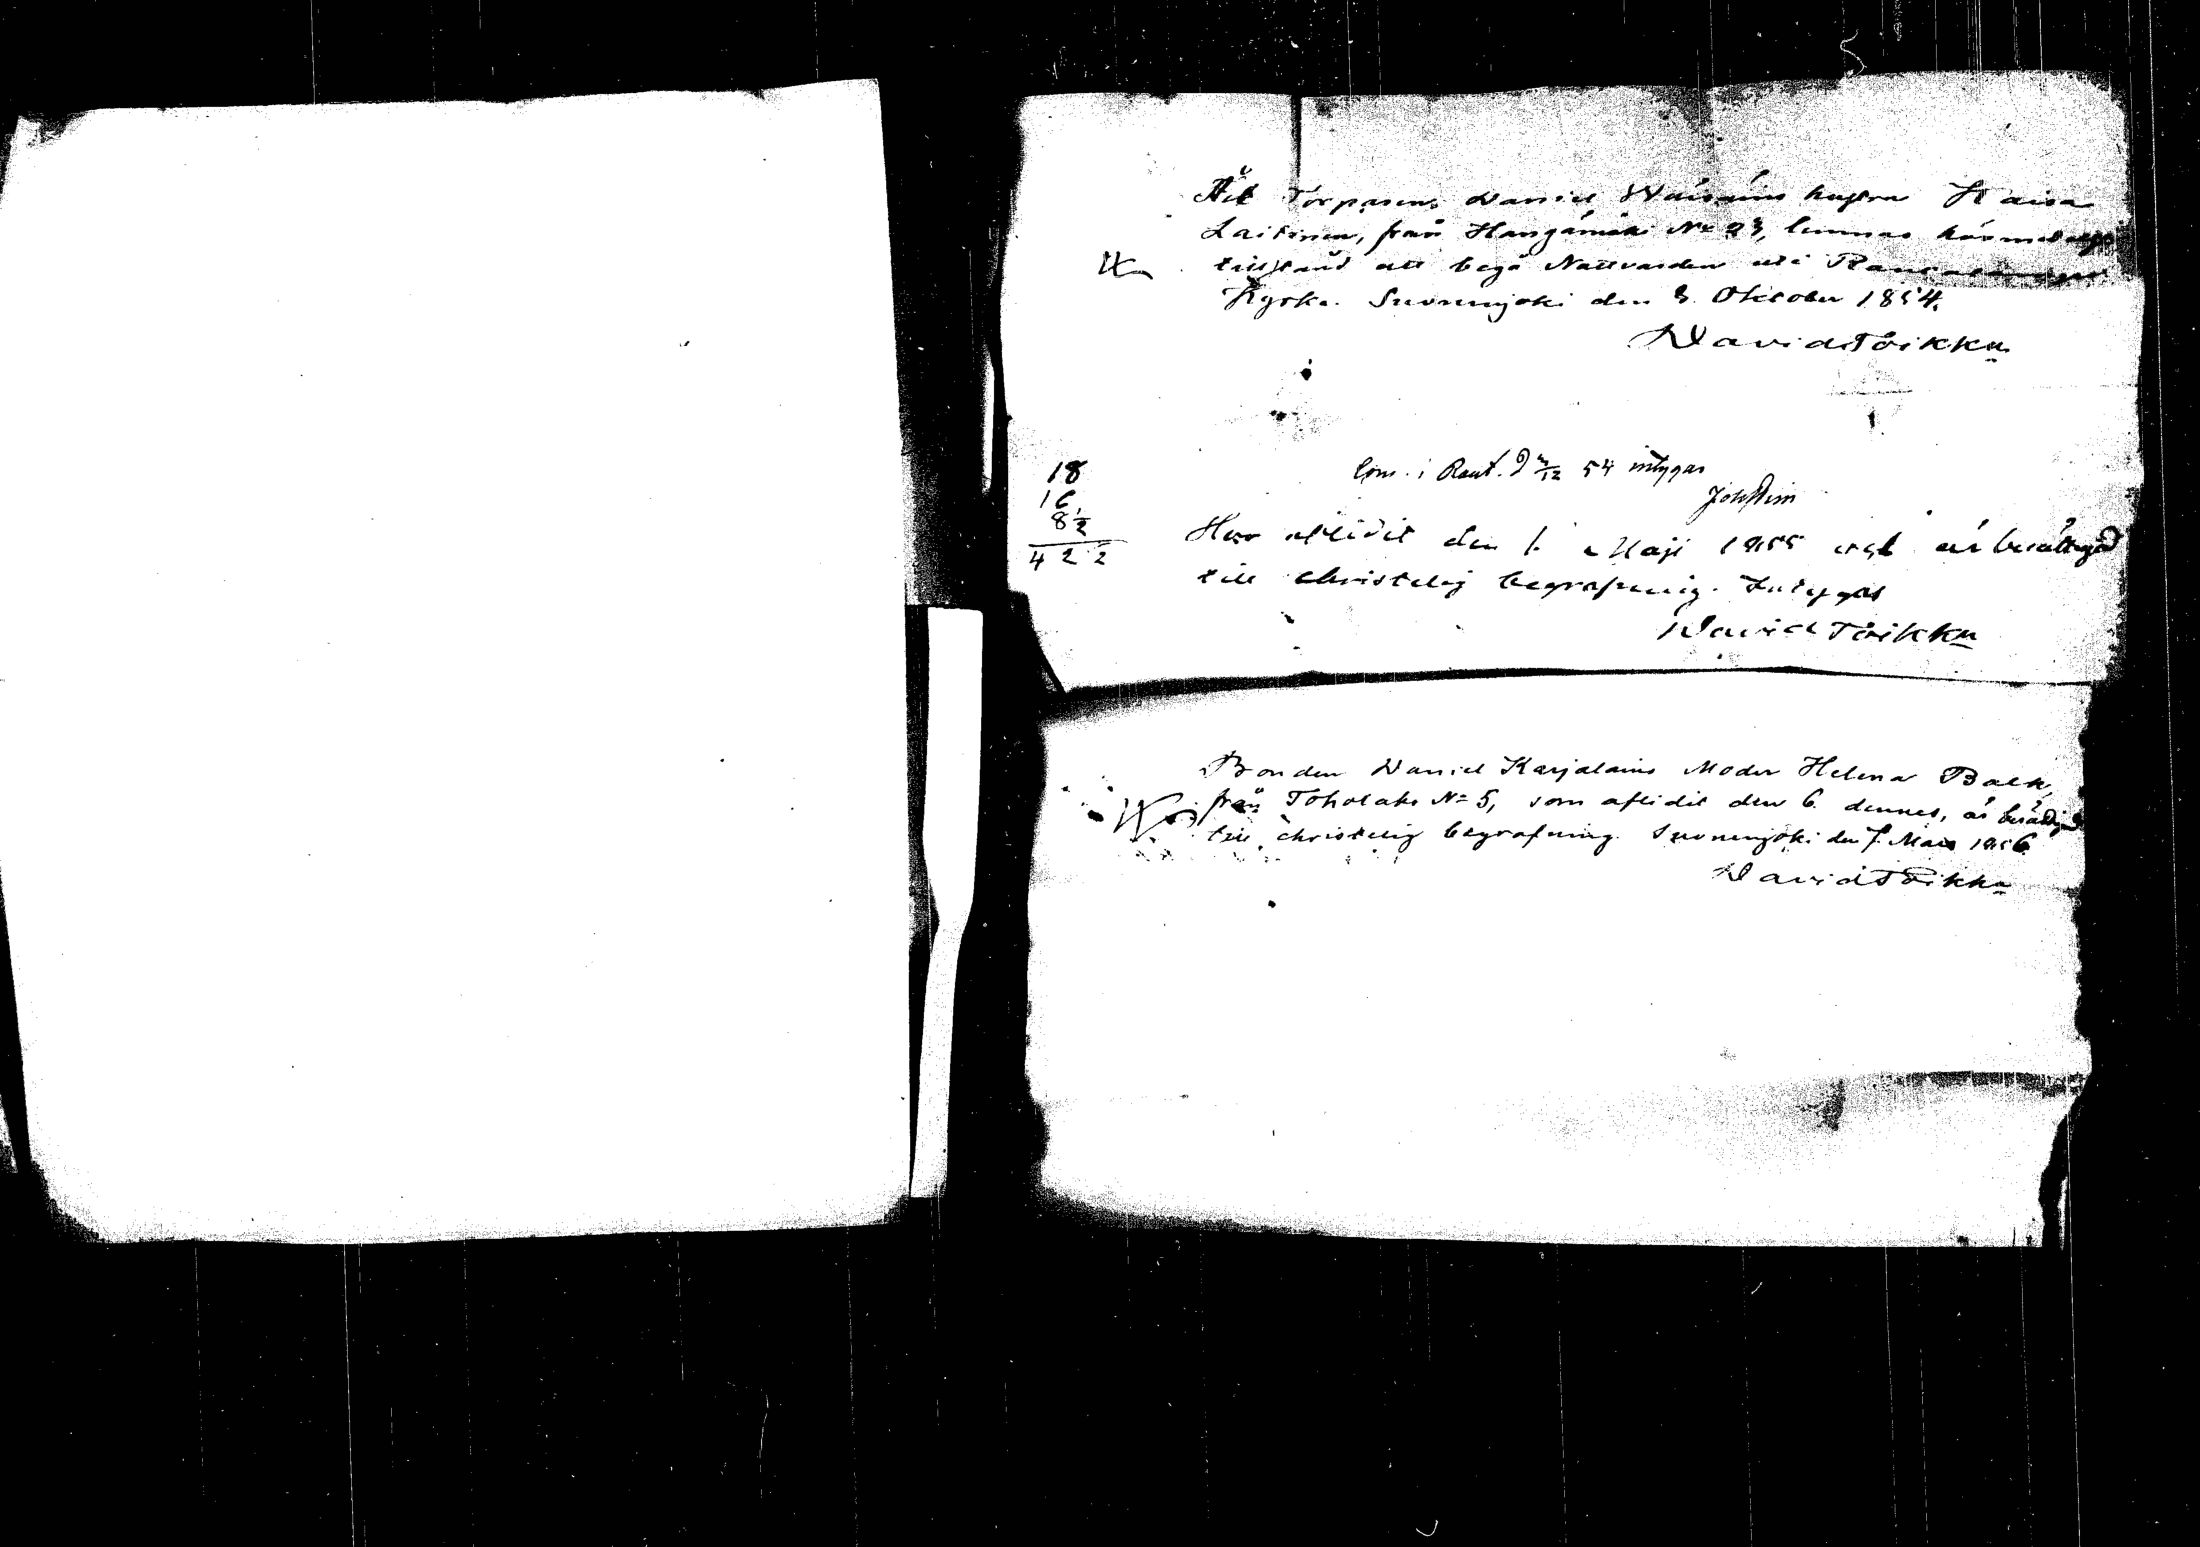 Åt Torparen Daniel Wäisäins hustru Kaisa
Laitinen, från Hangämäki No 23, lemnas härmedelst
tillstånd att begå Nattvarden uti Rautalampi
Kyrka. Suonenjoki den 3. Oktober 1854.
David Toikka
Com. i Raut. D 3/12 54 intygar
18
16
8 1/2
4 2 2
Har aflidit den 1. Maji 1855 och är berättigad
till christelig begrafning. Intygas
David Toikka
Bonden Daniel Karjalains Moder Helena Back,
från Toholaks No 5, som aflidit den 6. dennes, är berättigad
till christelig begrafning. Suonenjoki den 7. Mars 1856.
David Toikka